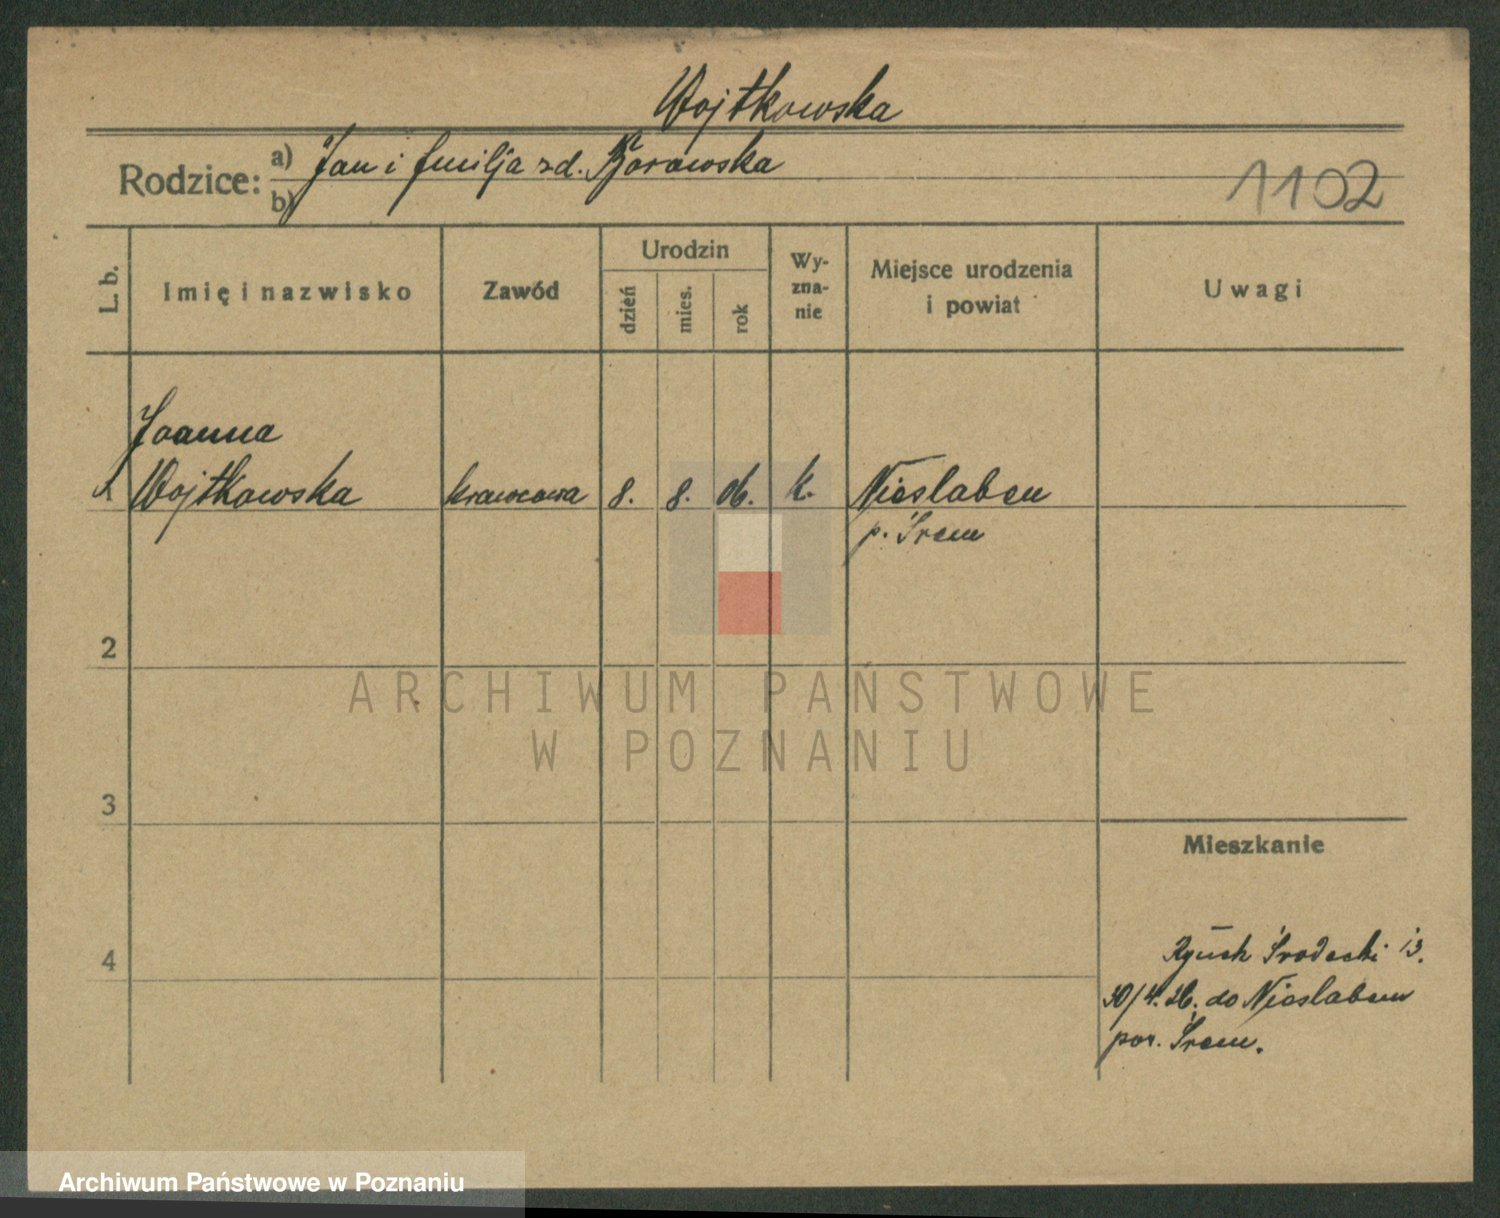 Wojtkowska
Rodzice: a) Jan i Emilja zd. Borowska
b)
1102
L. b.
Imię i nazwisko
Zawód
Urodzin
dzień
mies.
rok
Wy-
zna-
nie
Miejsce urodzenia
i powiat
Uwagi
Joanna
1 Wojtkowska krawcowa 8. 8. 06. k. Niesłabin
p. Śrem
2
ARCHIWUM PAŃSTWOWE
W POZNANIU
3
Mieszkanie
4
Rynek Śródecki 13.
30/4. 26. do Niesłabin
pow. Śrem.
Archiwum Państwowe w Poznaniu